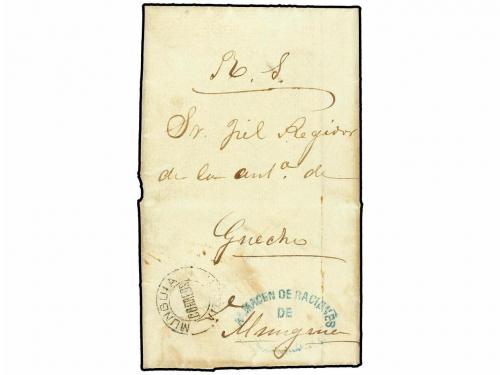 R. S.
Sr. Fiel Regidor
de la ant.ª de
Guecho
MUNGUIA
ALMACEN DE RACIONES
DE